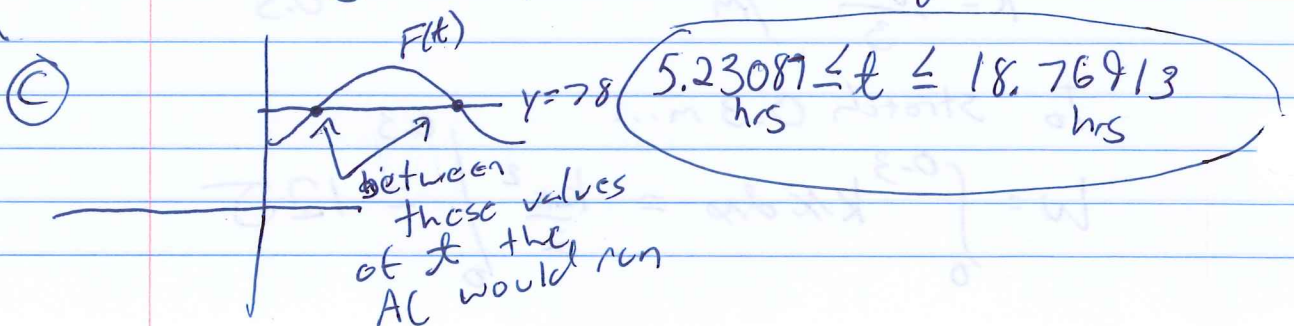 C
F(t)
y=78
5.23087 ≤ t ≤ 18.76913
hrs hrs
between
these values
of t the
AC would run